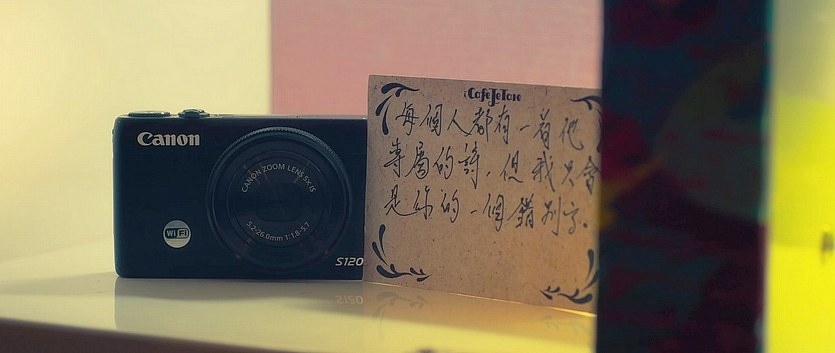 Canon
CANON ZOOM LENS 5x IS
5.2-26.0mm 1:1.8-5.7
Wi Fi
S120
CafeJeTaie
每個人都有一首他
專屬的詩，但我只會
是你的一個錯別字.